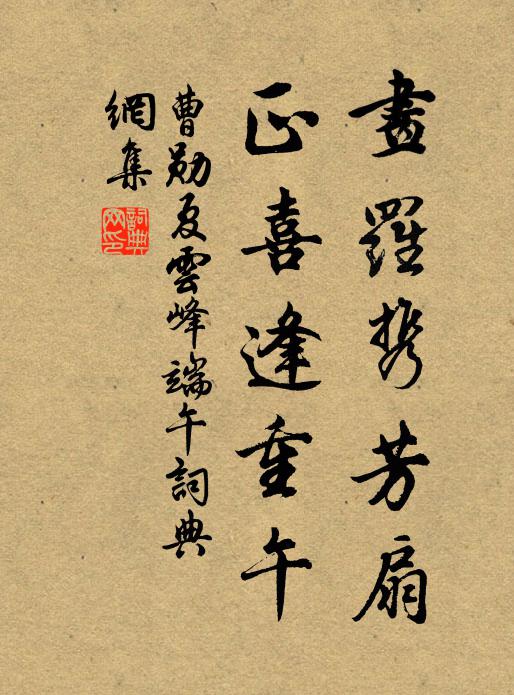 畫羅攜芳扇
正喜逢重午
曹勛夏雲峰端午詞典
網集
詞典網印